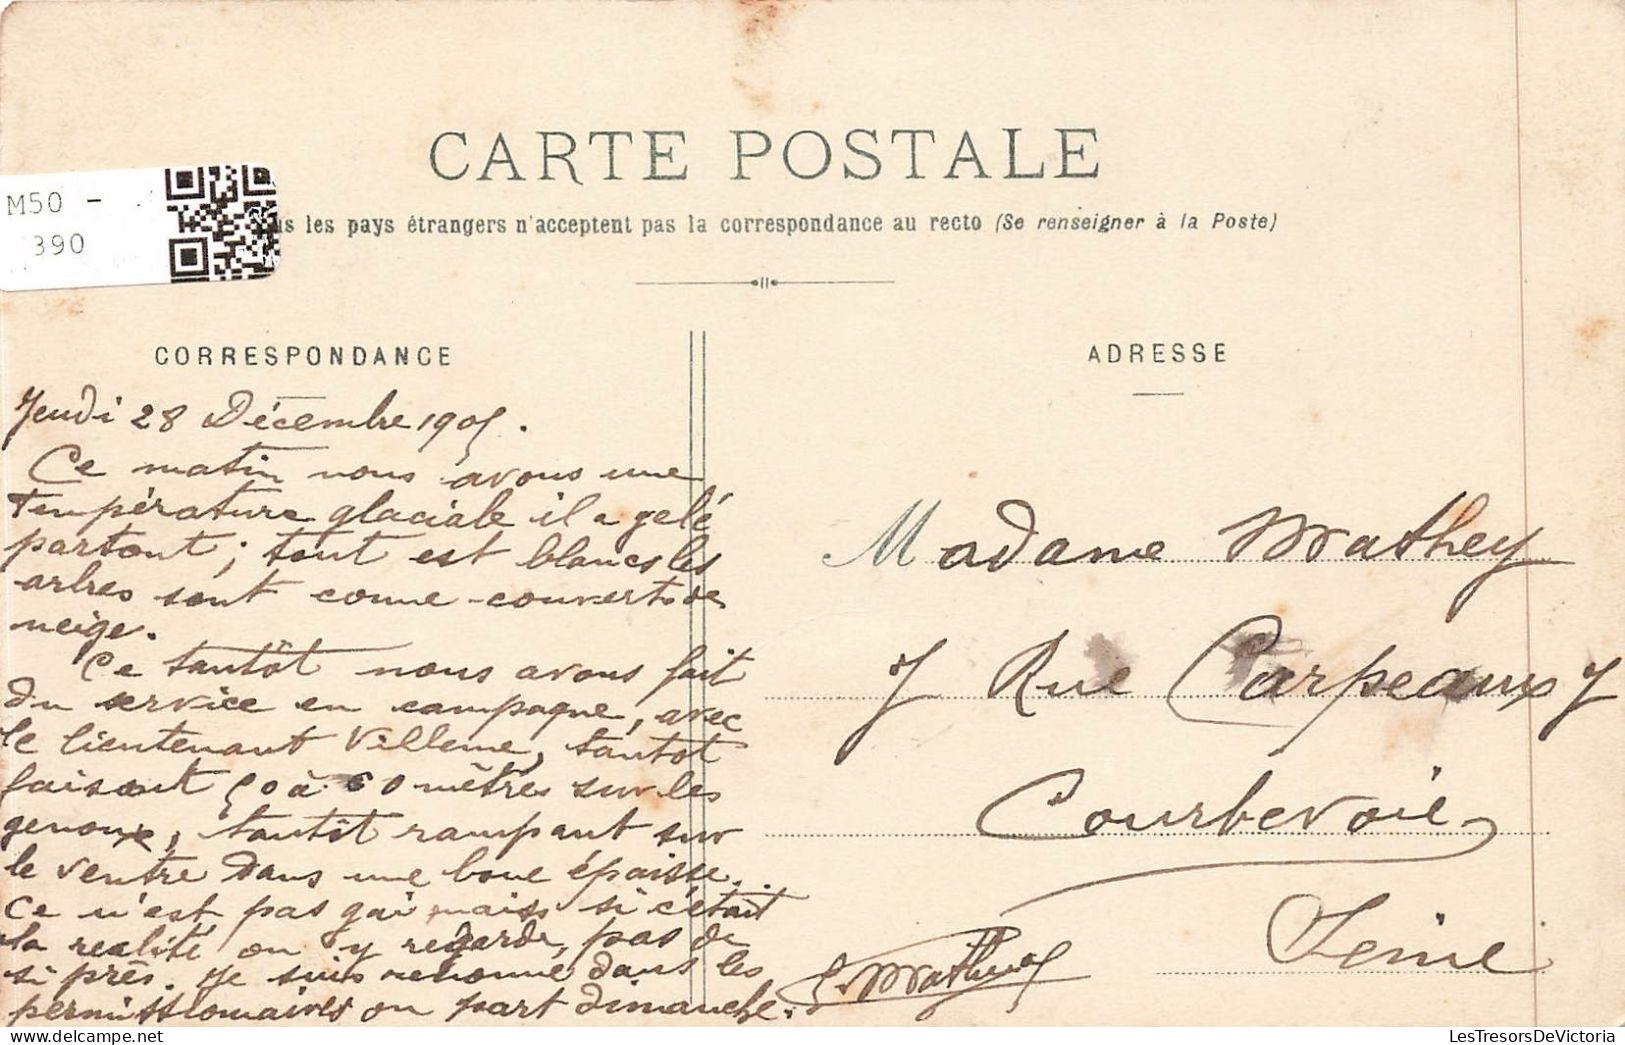 CARTE POSTALE
M50 -
390
les pays étrangers n'acceptent pas la correspondance au recto (Se renseigner à la Poste)
CORRESPONDANCE
Jeudi 28 Décembre 1905.
Ce matin nous avons une
température glaciale il a gelé
partout; tout est blanc les
arbres sont comme couverts de
neige.
Ce tantôt nous avons fait
du service en campagne, avec
le lieutenant Villeme, tantôt
faisant 50 à 60 mètres sur les
genoux, tantôt rampant sur
le ventre dans une boue épaisse.
Ce n'est pas gai mais si c'était
la realité on y regarde pas de
si près. Je suis dans les
permissionnaires on part dimanche.
ADRESSE
Madame Mathey
7 Rue Carpeaux 7
Courbevoie
Seine
LesTresorsDeVictoria.com